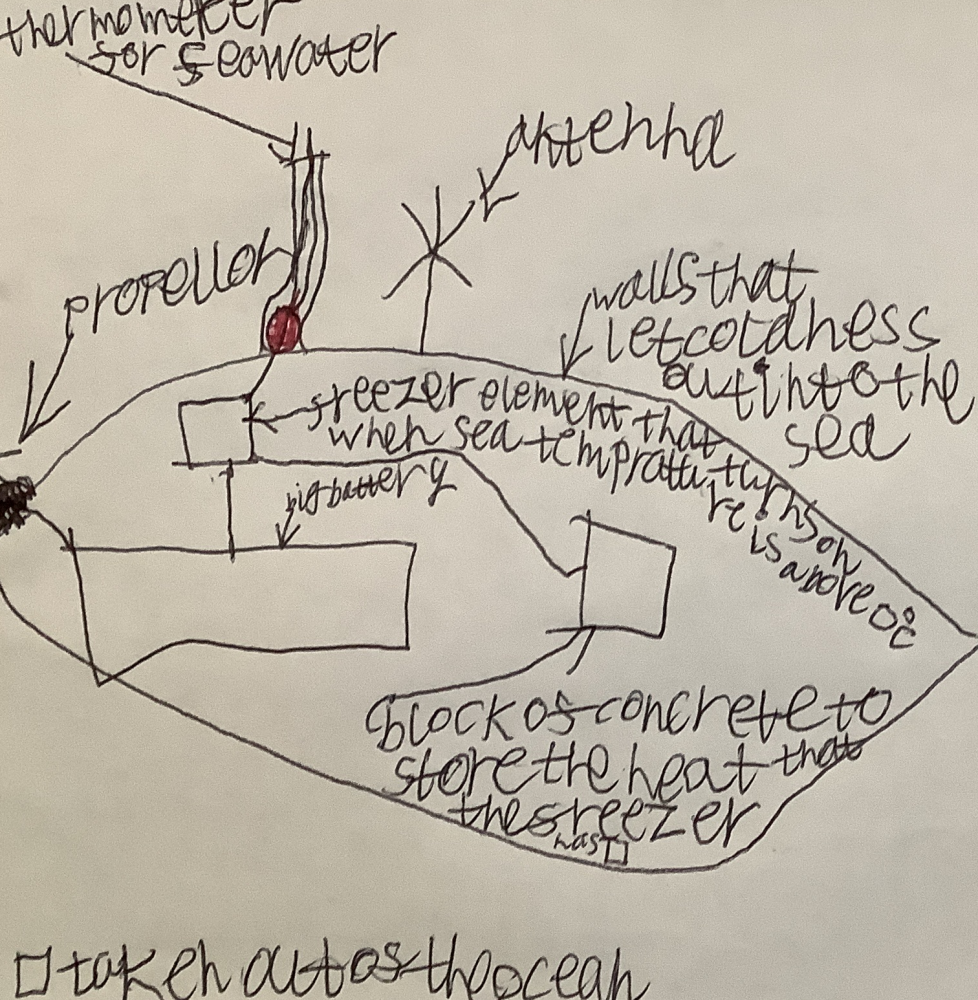 thermometer
for seawater
antenna
propellor
walls that
let coldness
out into the
sea
freezer element that turns on
when sea temprature is above 0°c
big battery
block of concrete to
store the heat that
the freezer
has □
□ taken out of the ocean